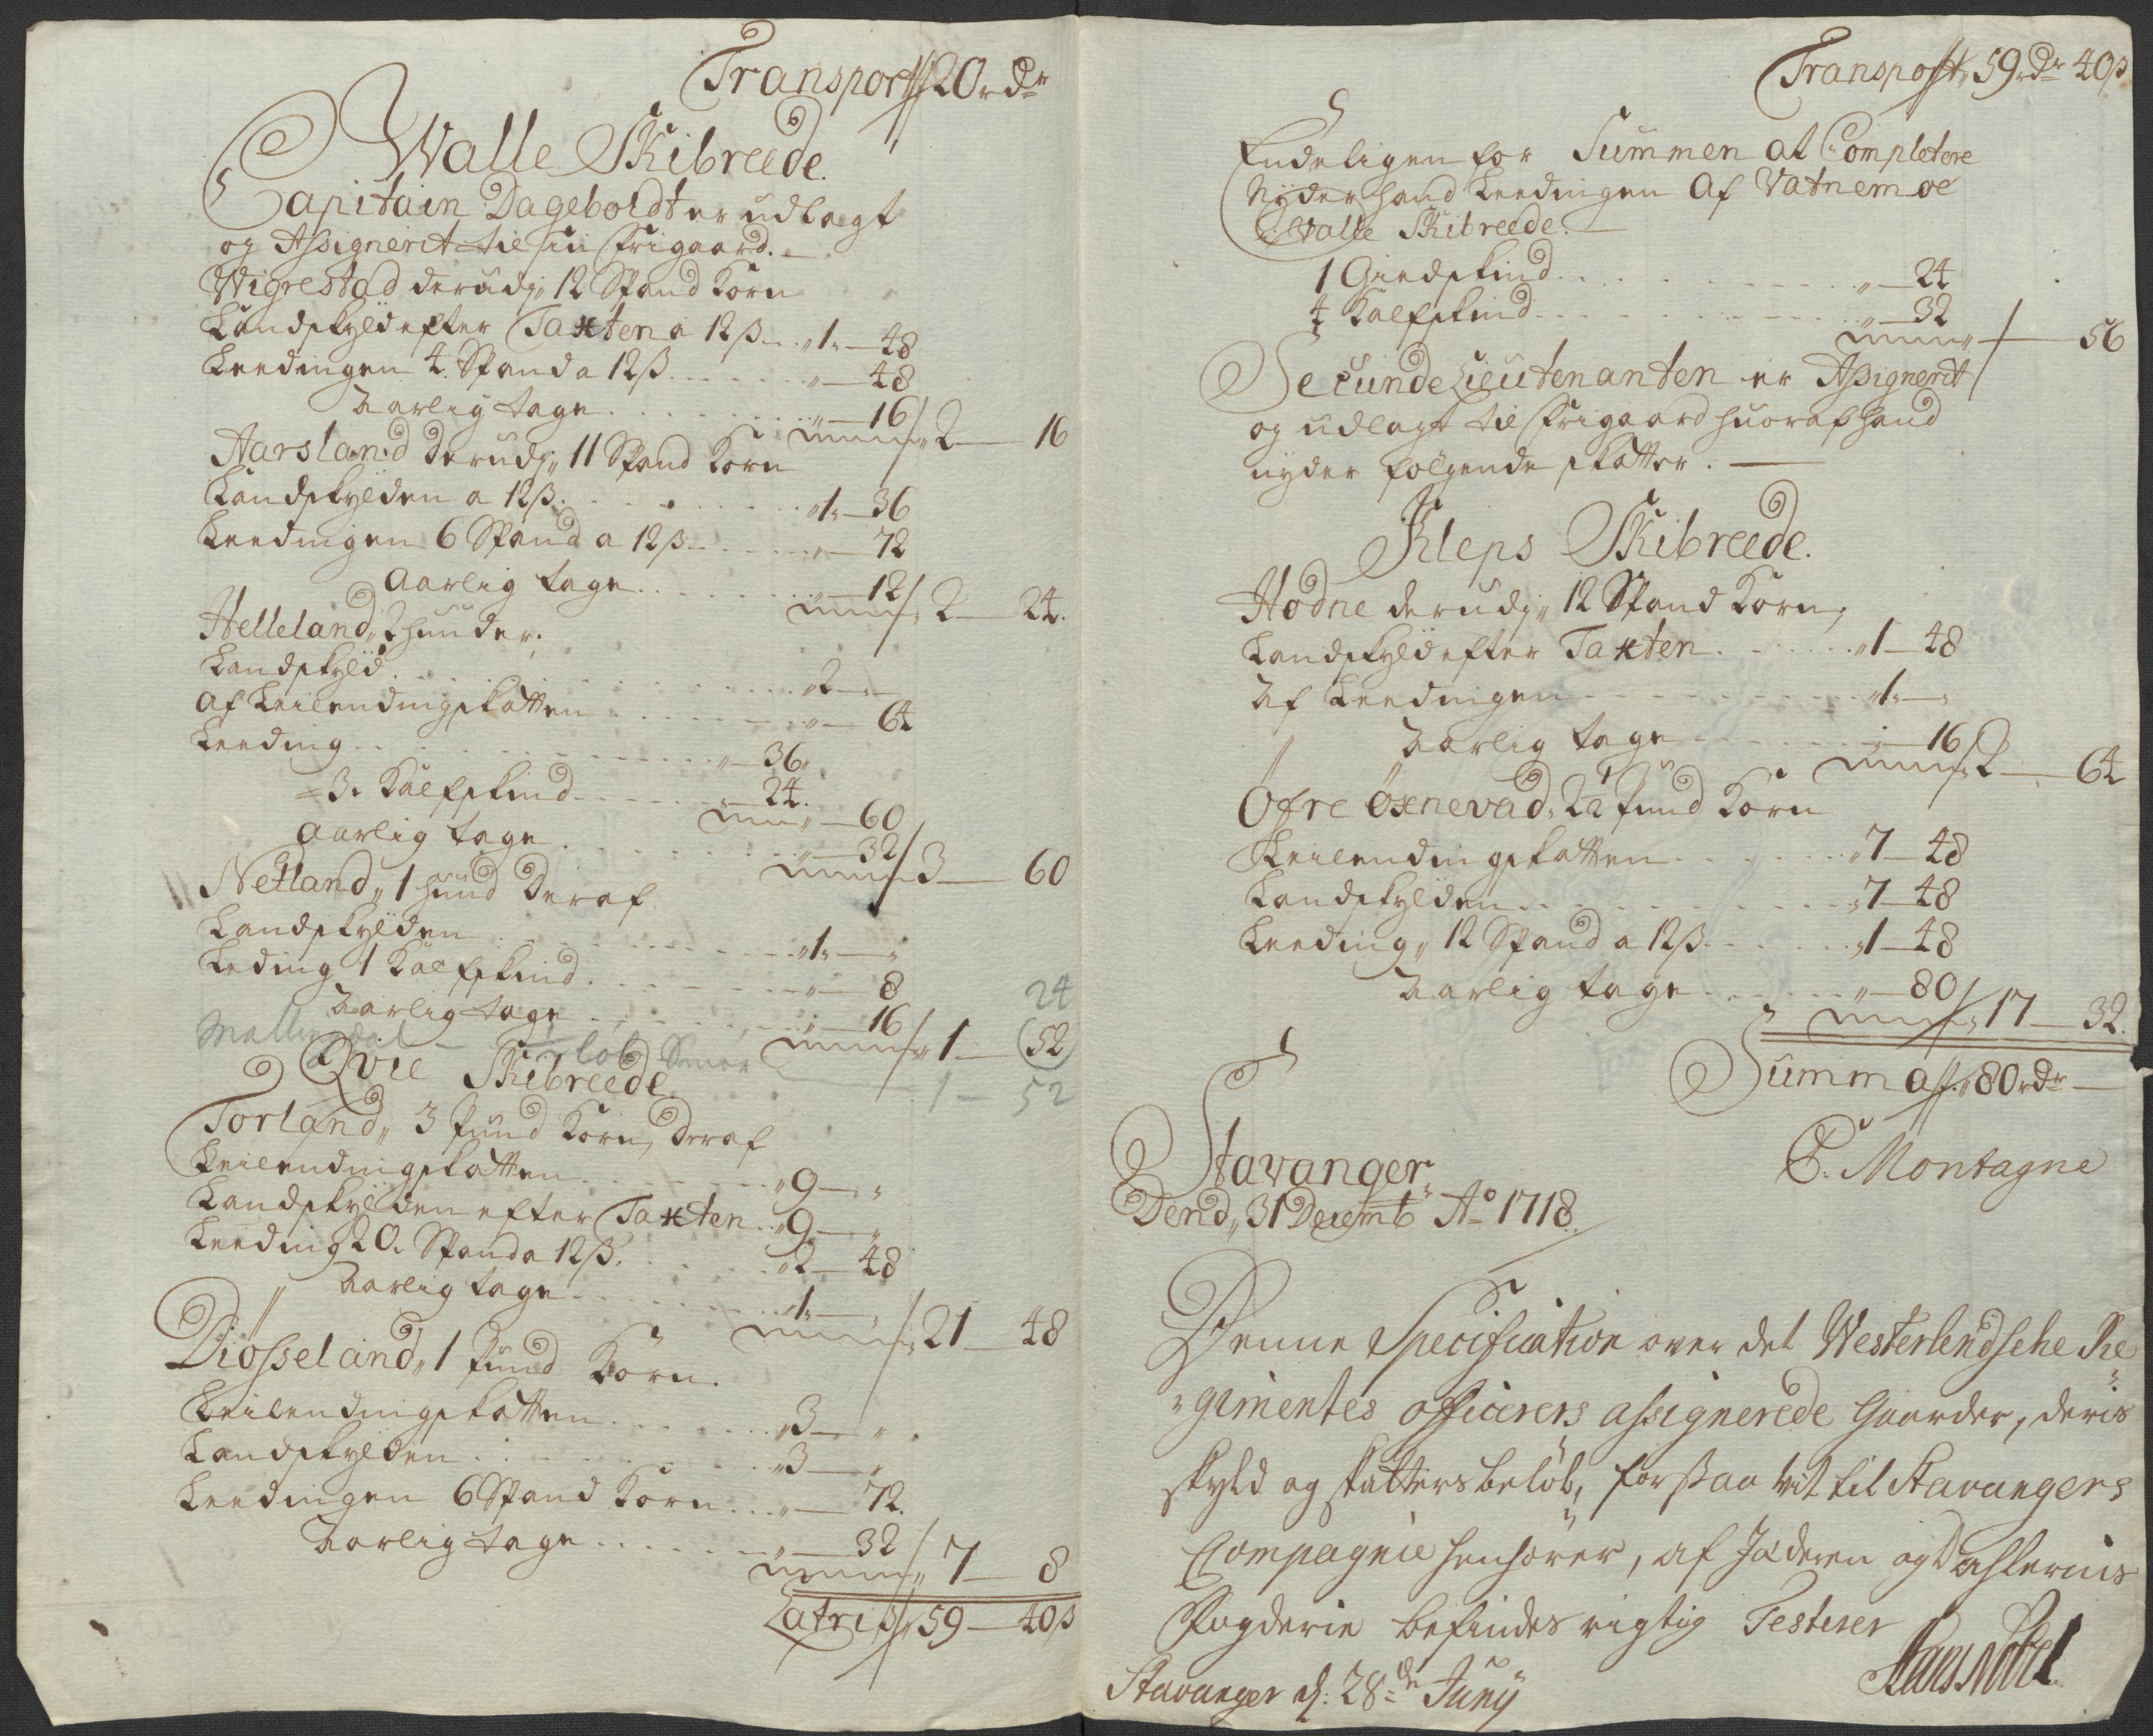 Transport 20 rdr
Walle Skibreede.
Capitain Dageboldt er udlagt
og Assignerit til sin Friigaard.
Wigrestad derudj 12 Spand Korn
Landskyld efter Taxten a 12 ß ... 1 - 48
Leedingen 4 Spand a 12 ß ... 48
Aarlig tage ... 16 / 2 - 16
Aarsland derudj 11 Spand Korn
Landskylden a 12 ß ... 1 - 36
Leedingen 6 Spand a 12 ß ... 72
Aarlig tage ... 12 / 2 - 24.
Helleland, 2 huuder.
Landskyld ... 2 -
Af Leilendingskatten ... 64
Leeding ... 36
3 Kalfskind ... 24.
60
Aarlig tage ... 32 / 3 - 60
Netland, 1 huud Deraf
Landskylden ... 1 -
Leding 1 Kalfskind ... 8
24
Aarlig tage ... 16 / 1 - 52
løb Smør
1 - 52
Qvie Skibreede.
Torland, 3 Pund Korn, Deraf
Leilendingskatten ... 9 -
Landskylden efter Taxten ... 9 -
Leeding 20 Spand a 12 ß ... 2 - 48
Aarlig tage ... 1 - / 21 - 48
Diösseland, 1 Pund Korn.
Leilendingskatten ... 3 -
Landskylden ... 3 -
Leedingen 6 Spand Korn ... 72.
Aarlig tage ... 32 / 7 - 8
Latris 59 - 40 ß
Transport 59 rdr 40 ß
Endeligen for Summen at Completere
Nyder hand Leedingen Af Vatnemoe
i Walle Skibreede.
1 Giedskind ... 24
4 Kalfskind ... 32
56
Secunde Lieutenanten er Assignerit
og udlagt til Friigaard huoraf hand
nyder følgende skatter.
Kleps Skibreede.
Hodne derudj 12 Spand Korn,
Landskyld efter Taxten ... 1 - 48
Af Leedingen ... 1 -
Aarlig tage ... 16 / 2 - 64
Öfre Öxnevad, 2½ Pund Korn
Leilendingskatten ... 7 - 48
Landskylden ... 7 - 48
Leeding, 12 Spand a 12 ß ... 1 - 48
Aarlig tage ... 80 / 17 - 32.
Summa 80 rdr
Stavanger
Dend 31 Decemb Ao 1718.
C. Montagne
Denne Specification over det Westerlendsche Re
gimentes officerers assignerede Gaarder, deris
skyld og skatters beløb, forsaa vit til Stavangers
Compagnie henhører, af Jæderen og Dahlernis
Fogderie befindes rigtig Testerer
Stavanger d: 28de Junij
Hans Nobel